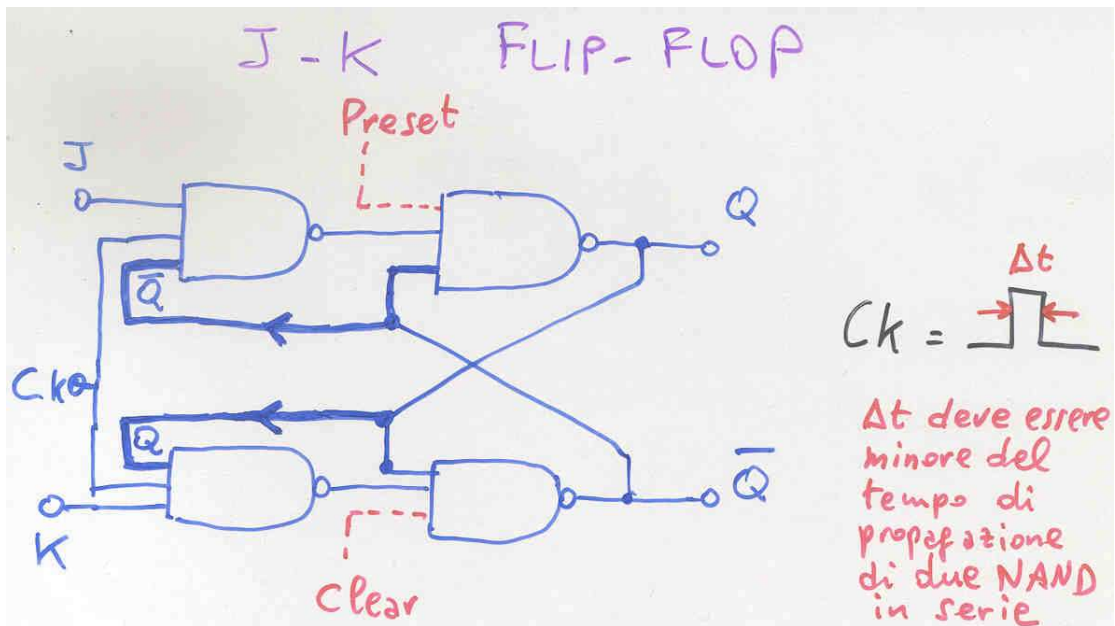 J - K FLIP-FLOP
Preset
J
Q
Q̅
Δt
Ck =
Ck
Q
Q̅
K
Clear
Δt deve essere
minore del
tempo di
propagazione
di due NAND
in serie